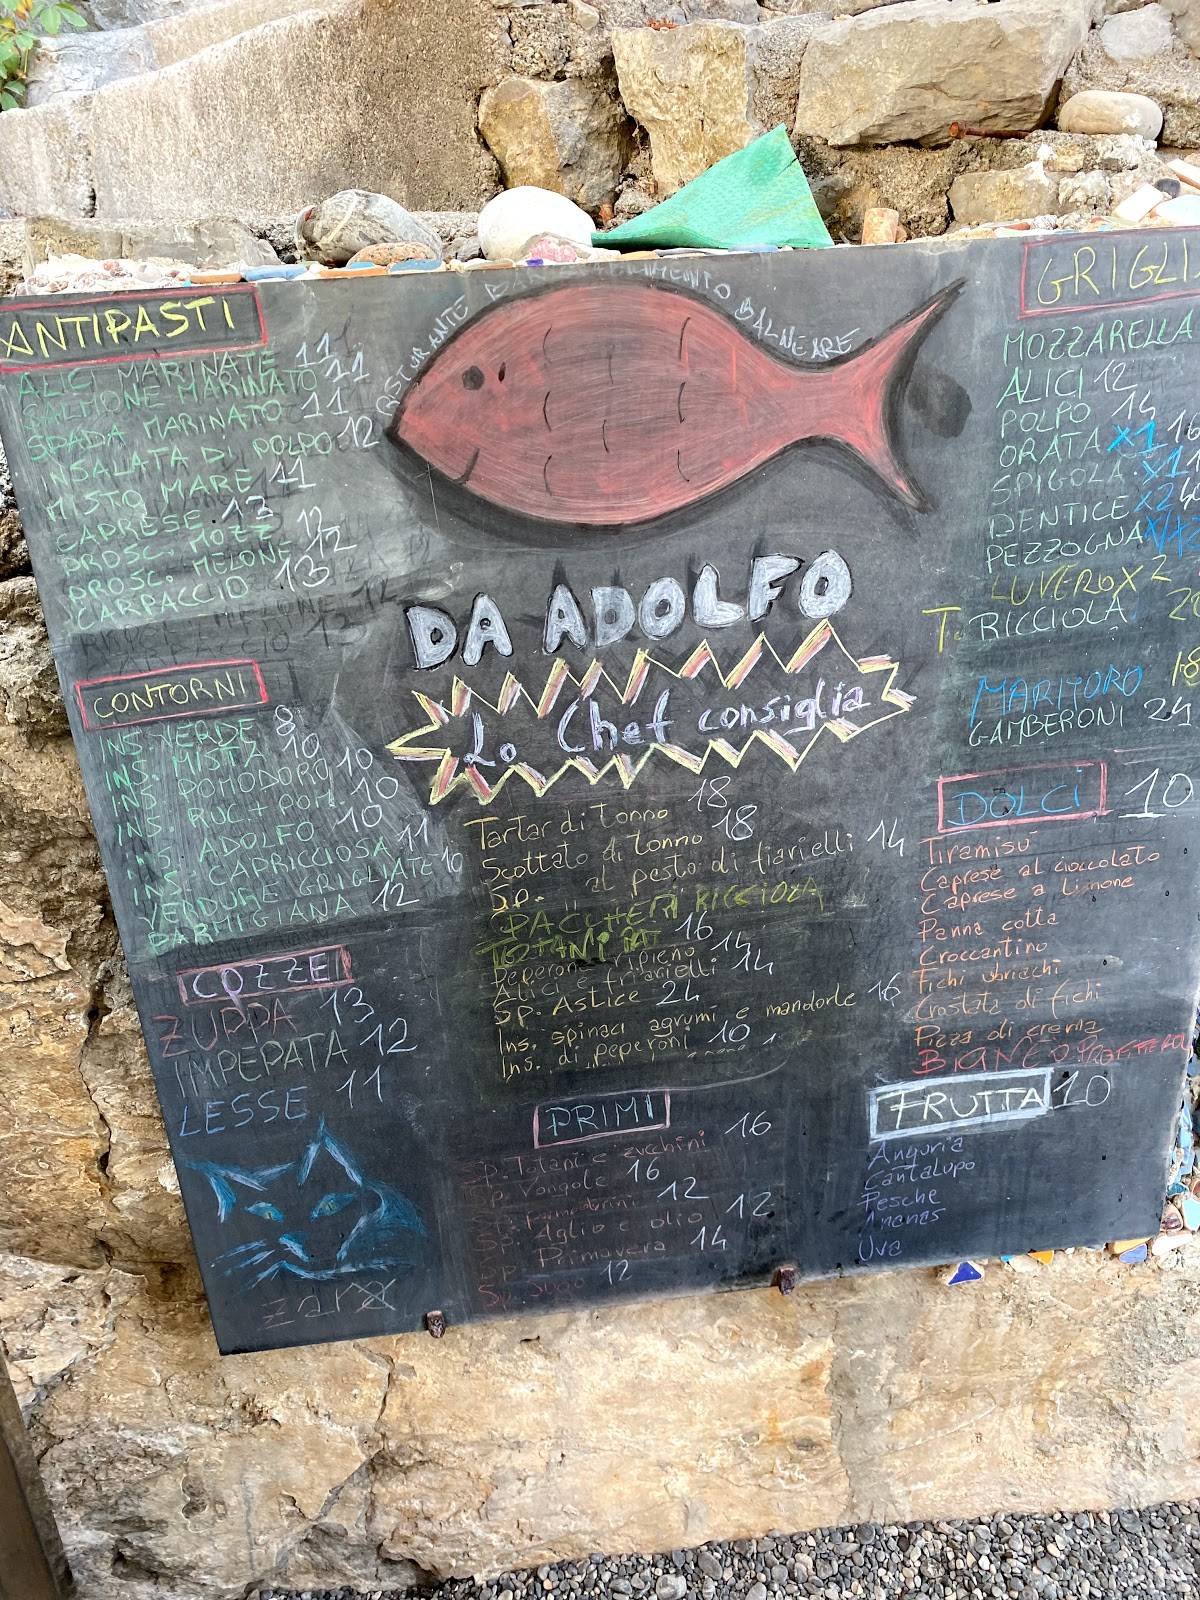 RISTORANTE BALNEARE
DA ADOLFO
ANTIPASTI
ALICI MARINATE 11
SALMONE MARINATO 11
SPADA MARINATO 11
INSALATA DI POLPO 12
MISTO MARE 11
CAPRESE 13
PROSC. MOZZ 12
PROSC. MELONE 12
CARPACCIO 13
CONTORNI
INS. VERDE 8
INS. MISTA 10
INS. POMODORO 10
INS. RUC + POM. 10
INS. ADOLFO 10
INS. CAPRICCIOSA 11
VERDURE GRIGLIATE 10
PARMIGIANA 12
COZZE
ZUPPA 13
IMPEPATA 12
LESSE 11
Lo Chef consiglia
Tartar di tonno 18
Scottato di tonno 18
Sp. al pesto di fiarielli 14
PACCHERI RICCIOLA
Peperone ripieno 16
Alici e friarielli 14
Sp. Astice 24
Ins. spinaci agrumi e mandorle 16
Ins. di peperoni 10
PRIMI
Sp. Totani e zucchini 16
Sp. Vongole 16
Sp. Pomodorini 12
Sp. Aglio e olio 12
Sp. Primavera 14
Sp. Sugo 12
GRIGLI
MOZZARELLA
ALICI 12
POLPO 14
ORATA X1 16
SPIGOLA X1
DENTICE X2
PEZZOGNA
LUVERO X 2
RICCIOLA
GAMBERONI 24
DOLCI 10
Tiramisú
Caprese al cioccolato
Caprese a limone
Panna cotta
Croccantino
Fichi ubriachi
Crostata di fichi
Pizza di crema
FRUTTA 10
Anguria
Cantalupo
Pesche
Ananas
Uva